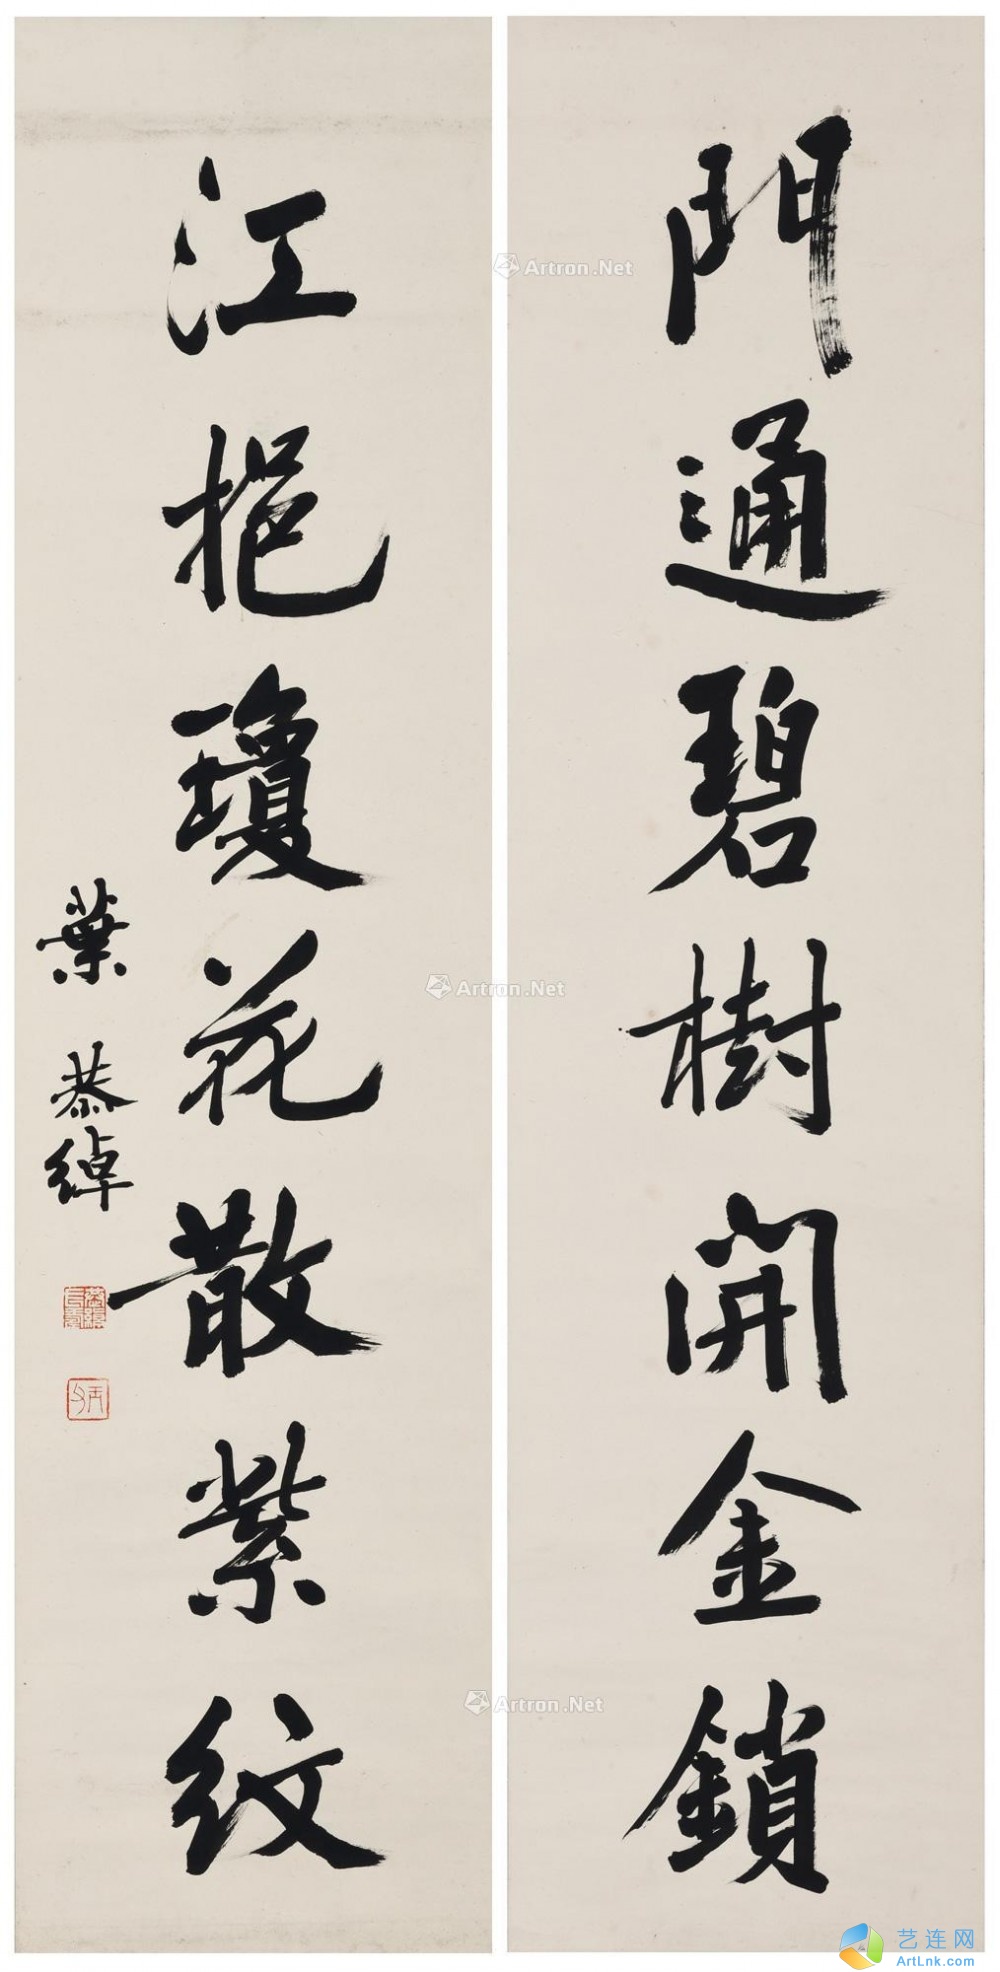 門通碧樹開金鎖
江挹瓊花散紫紋
葉恭綽
Artron.Net
Artron.Net
Artron.Net
艺连网
ArtLnk.com